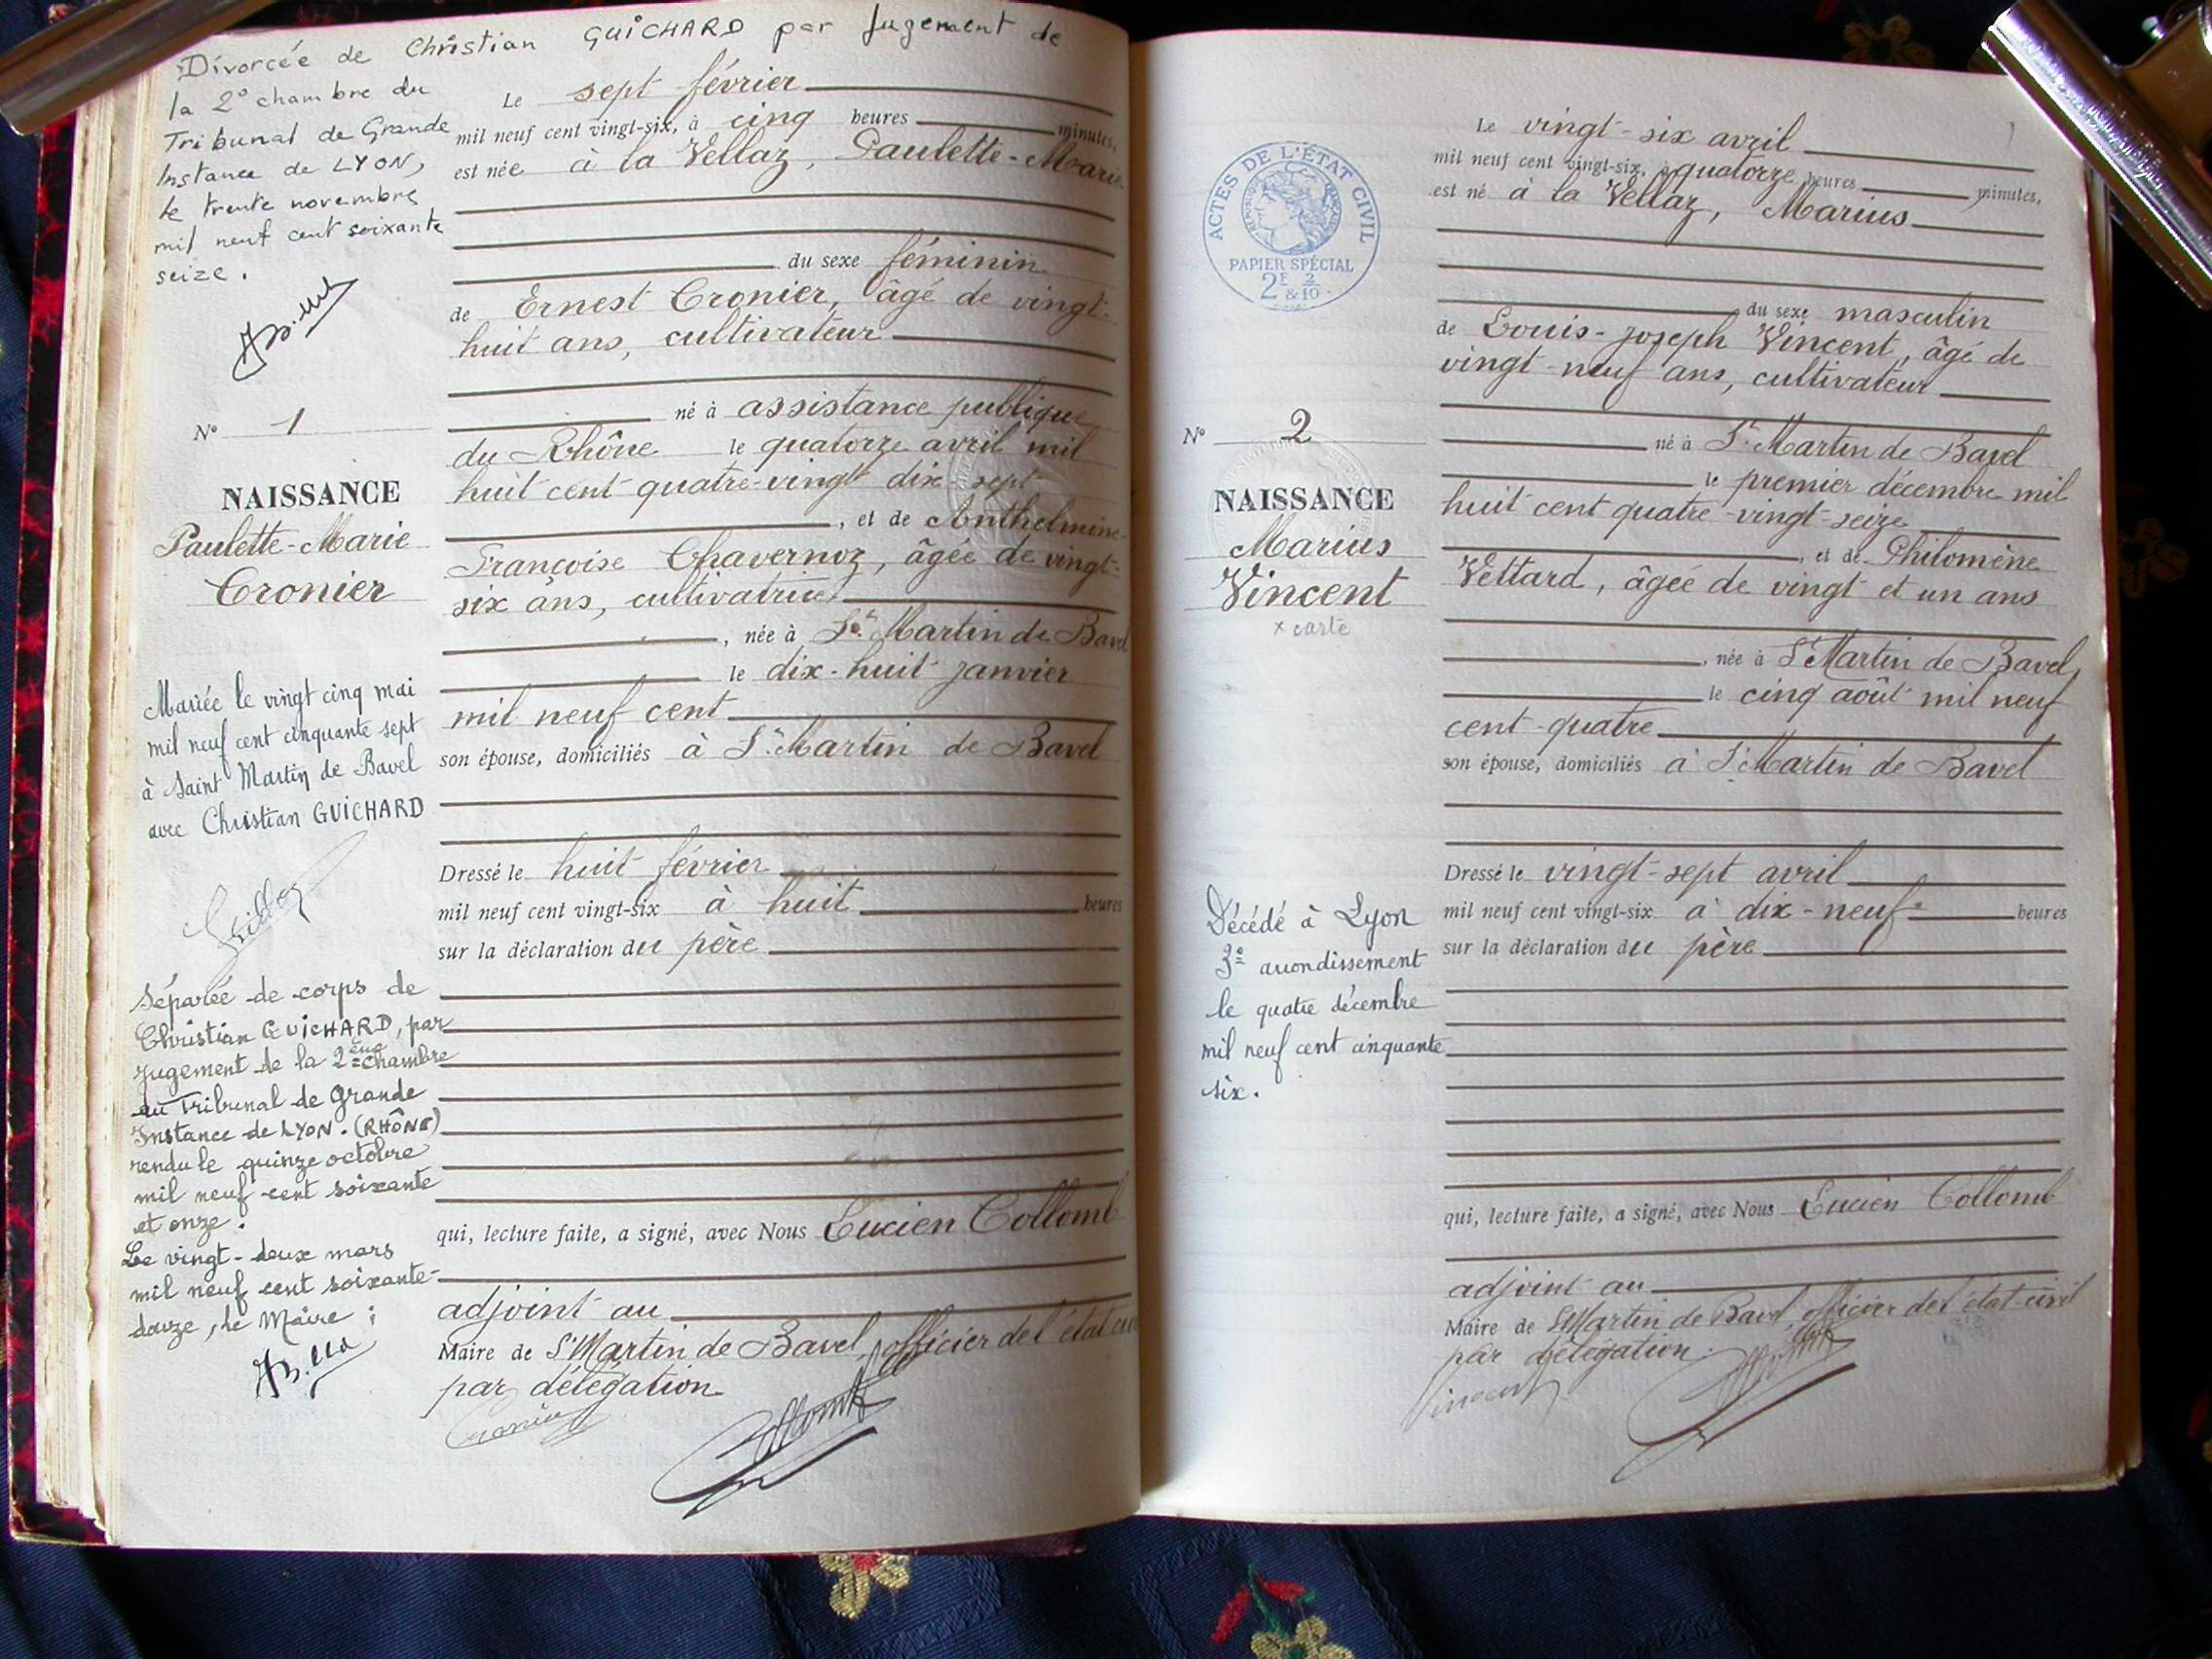 Divorcée de Christian GUICHARD par Jugement de
la 2° chambre du
Tribunal de Grande
Instance de LYON,
le trente novembre
mil neuf cent soixante
seize.
N° 1
NAISSANCE
Paulette-Marie
Cronier
Mariée le vingt cinq mai
mil neuf cent cinquante sept
à Saint Martin de Bavel
avec Christian GUICHARD
Séparée de corps de
Christian GUICHARD, par
jugement de la 2ème chambre
du Tribunal de Grande
Instance de LYON. (RHÔNE)
rendu le quinze octobre
mil neuf cent soixante
et onze.
Le vingt-deux mars
mil neuf cent soixante-
douze, le Maire ;
Le sept février
mil neuf cent vingt-six, à cinq heures minutes,
est née à la Vellaz, Paulette-Marie
du sexe féminin
de Ernest Cronier, âgé de vingt-
huit ans, cultivateur
né à assistance publique
du Rhône le quatorze avril mil
huit cent quatre-vingt dix-sept
, et de Anthelmine-
Françoise Chavernoz, âgée de vingt-
six ans, cultivatrice
, née à St Martin de Bavel
le dix-huit janvier
mil neuf cent
son épouse, domiciliés à St Martin de Bavel
Dressé le huit février
mil neuf cent vingt-six à huit heures
sur la déclaration du père
qui, lecture faite, a signé, avec Nous Lucien Collomb
adjoint au
Maire de St Martin de Bavel, officier de l'état civil
par délégation
Cronier
Collomb
ACTES DE L'ÉTAT CIVIL
PAPIER SPÉCIAL
2F 2/10
&
N° 2
NAISSANCE
Marius
Vincent
x carte
Décédé à Lyon
3e arrondissement
le quatre décembre
mil neuf cent cinquante
six.
Le vingt-six avril
mil neuf cent vingt-six, à quatorze heures minutes,
est né à la Vellaz, Marius
du sexe masculin
de Louis-Joseph Vincent, âgé de
vingt-neuf ans, cultivateur
né à St Martin de Bavel
le premier décembre mil
huit cent quatre-vingt-seize
, et de Philomène
Vettard, âgée de vingt et un ans
, née à St Martin de Bavel
le cinq août mil neuf
cent quatre
son épouse, domiciliés à St Martin de Bavel
Dressé le vingt-sept avril
mil neuf cent vingt-six à dix-neuf heures
sur la déclaration du père
qui, lecture faite, a signé, avec Nous Lucien Collomb
adjoint au
Maire de St Martin de Bavel, officier de l'état-civil
par délégation.
Vincent